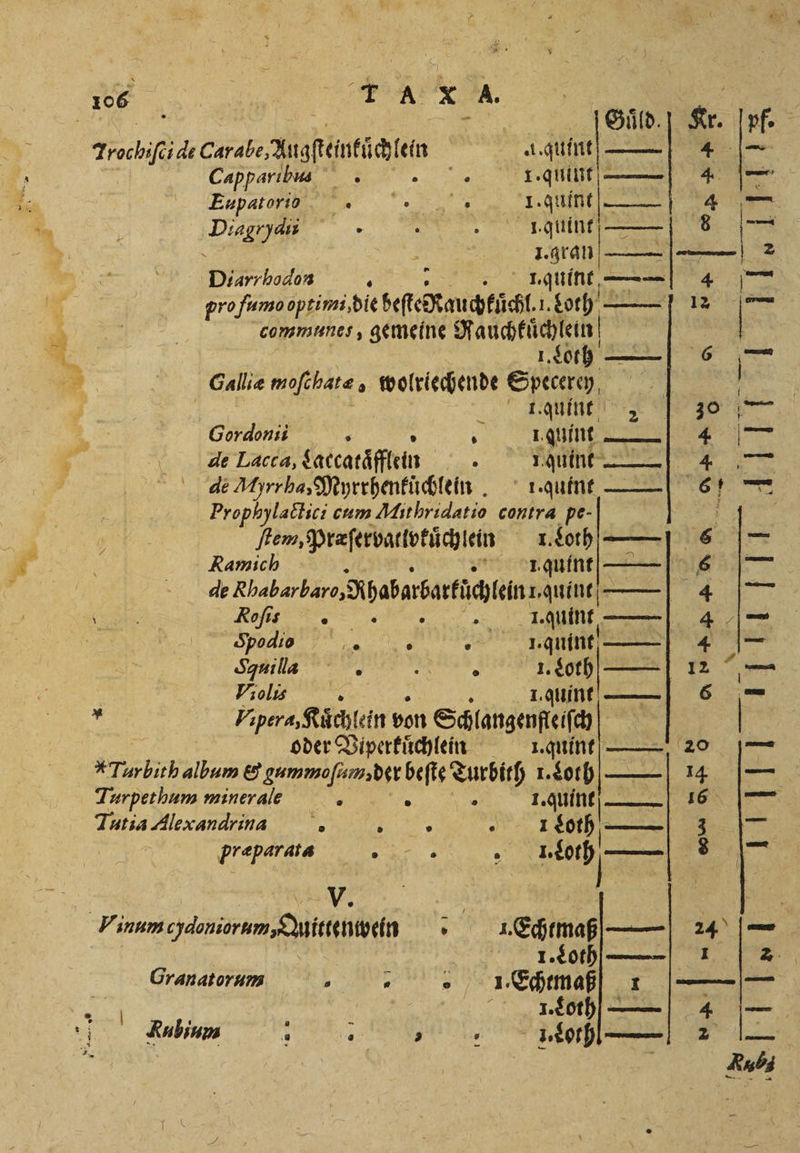 106 TAXA.
Gůld. Kr. pf.
Trochisci de Carabe, Augsteinfůchlein .1.quint —— 4 —
Capparibus . . . 1.quint —— 4 —
Eupatorio . . . 1.quint —— 4 —
Diagrydii . . . 1.quint —— 8 —
1.gran —— —— 2
Diarrhodon . . . 1.quint —— 4 —
profumo optimi, die beste Rauchfůchl. 1.Loth —— 12 —
communes, gemeine Rauchfůchlein
1.Loth —— 6 —
Galliæ moschatæ, wolriechende Specerey,
1.quint 2 30 —
Gordonii . . . 1.quint —— 4 —
de Lacca, Laccatåfflein . 1.quint —— 4 —
de Myrrha, Myrrhenfůchlein . 1.quint —— 6 —
Prophylactici cum Mithridatio contra pe-
stem, Præservativfůchlein 1.Loth —— 6 —
Ramich . . . 1.quint —— 6 —
de Rhabarbaro, Rhabarbarfůchlein 1.quint —— 4 —
Rosis . . . . 1.quint —— 4 —
Spodio . . . 1.quint —— 4 —
Squilla . . . 1.Loth —— 12 —
Violis . . . 1.quint —— 6 —
* Vipera, Kůchlein von Schlangenfleisch
oder Viperfůchlein 1.quint —— 20 —
*Turbith album & gummosum, der beste Turbith 1.Loth —— 14 —
Turpethum minerale . . . 1.quint —— 16 —
Tutia Alexandrina . . . . 1 Loth —— 3 —
præparata . . . 1.Loth —— 8 —
V.
Vinum cydoniorum, Quittenwein . 1.Echtmaß —— 24 —
1.Loth —— 1 2
Granatorum . . . 1.Echtmaß 1 —— —
1.Loth —— 4 —
Rubium . . . . 1.Loth —— 2 —
Rubi